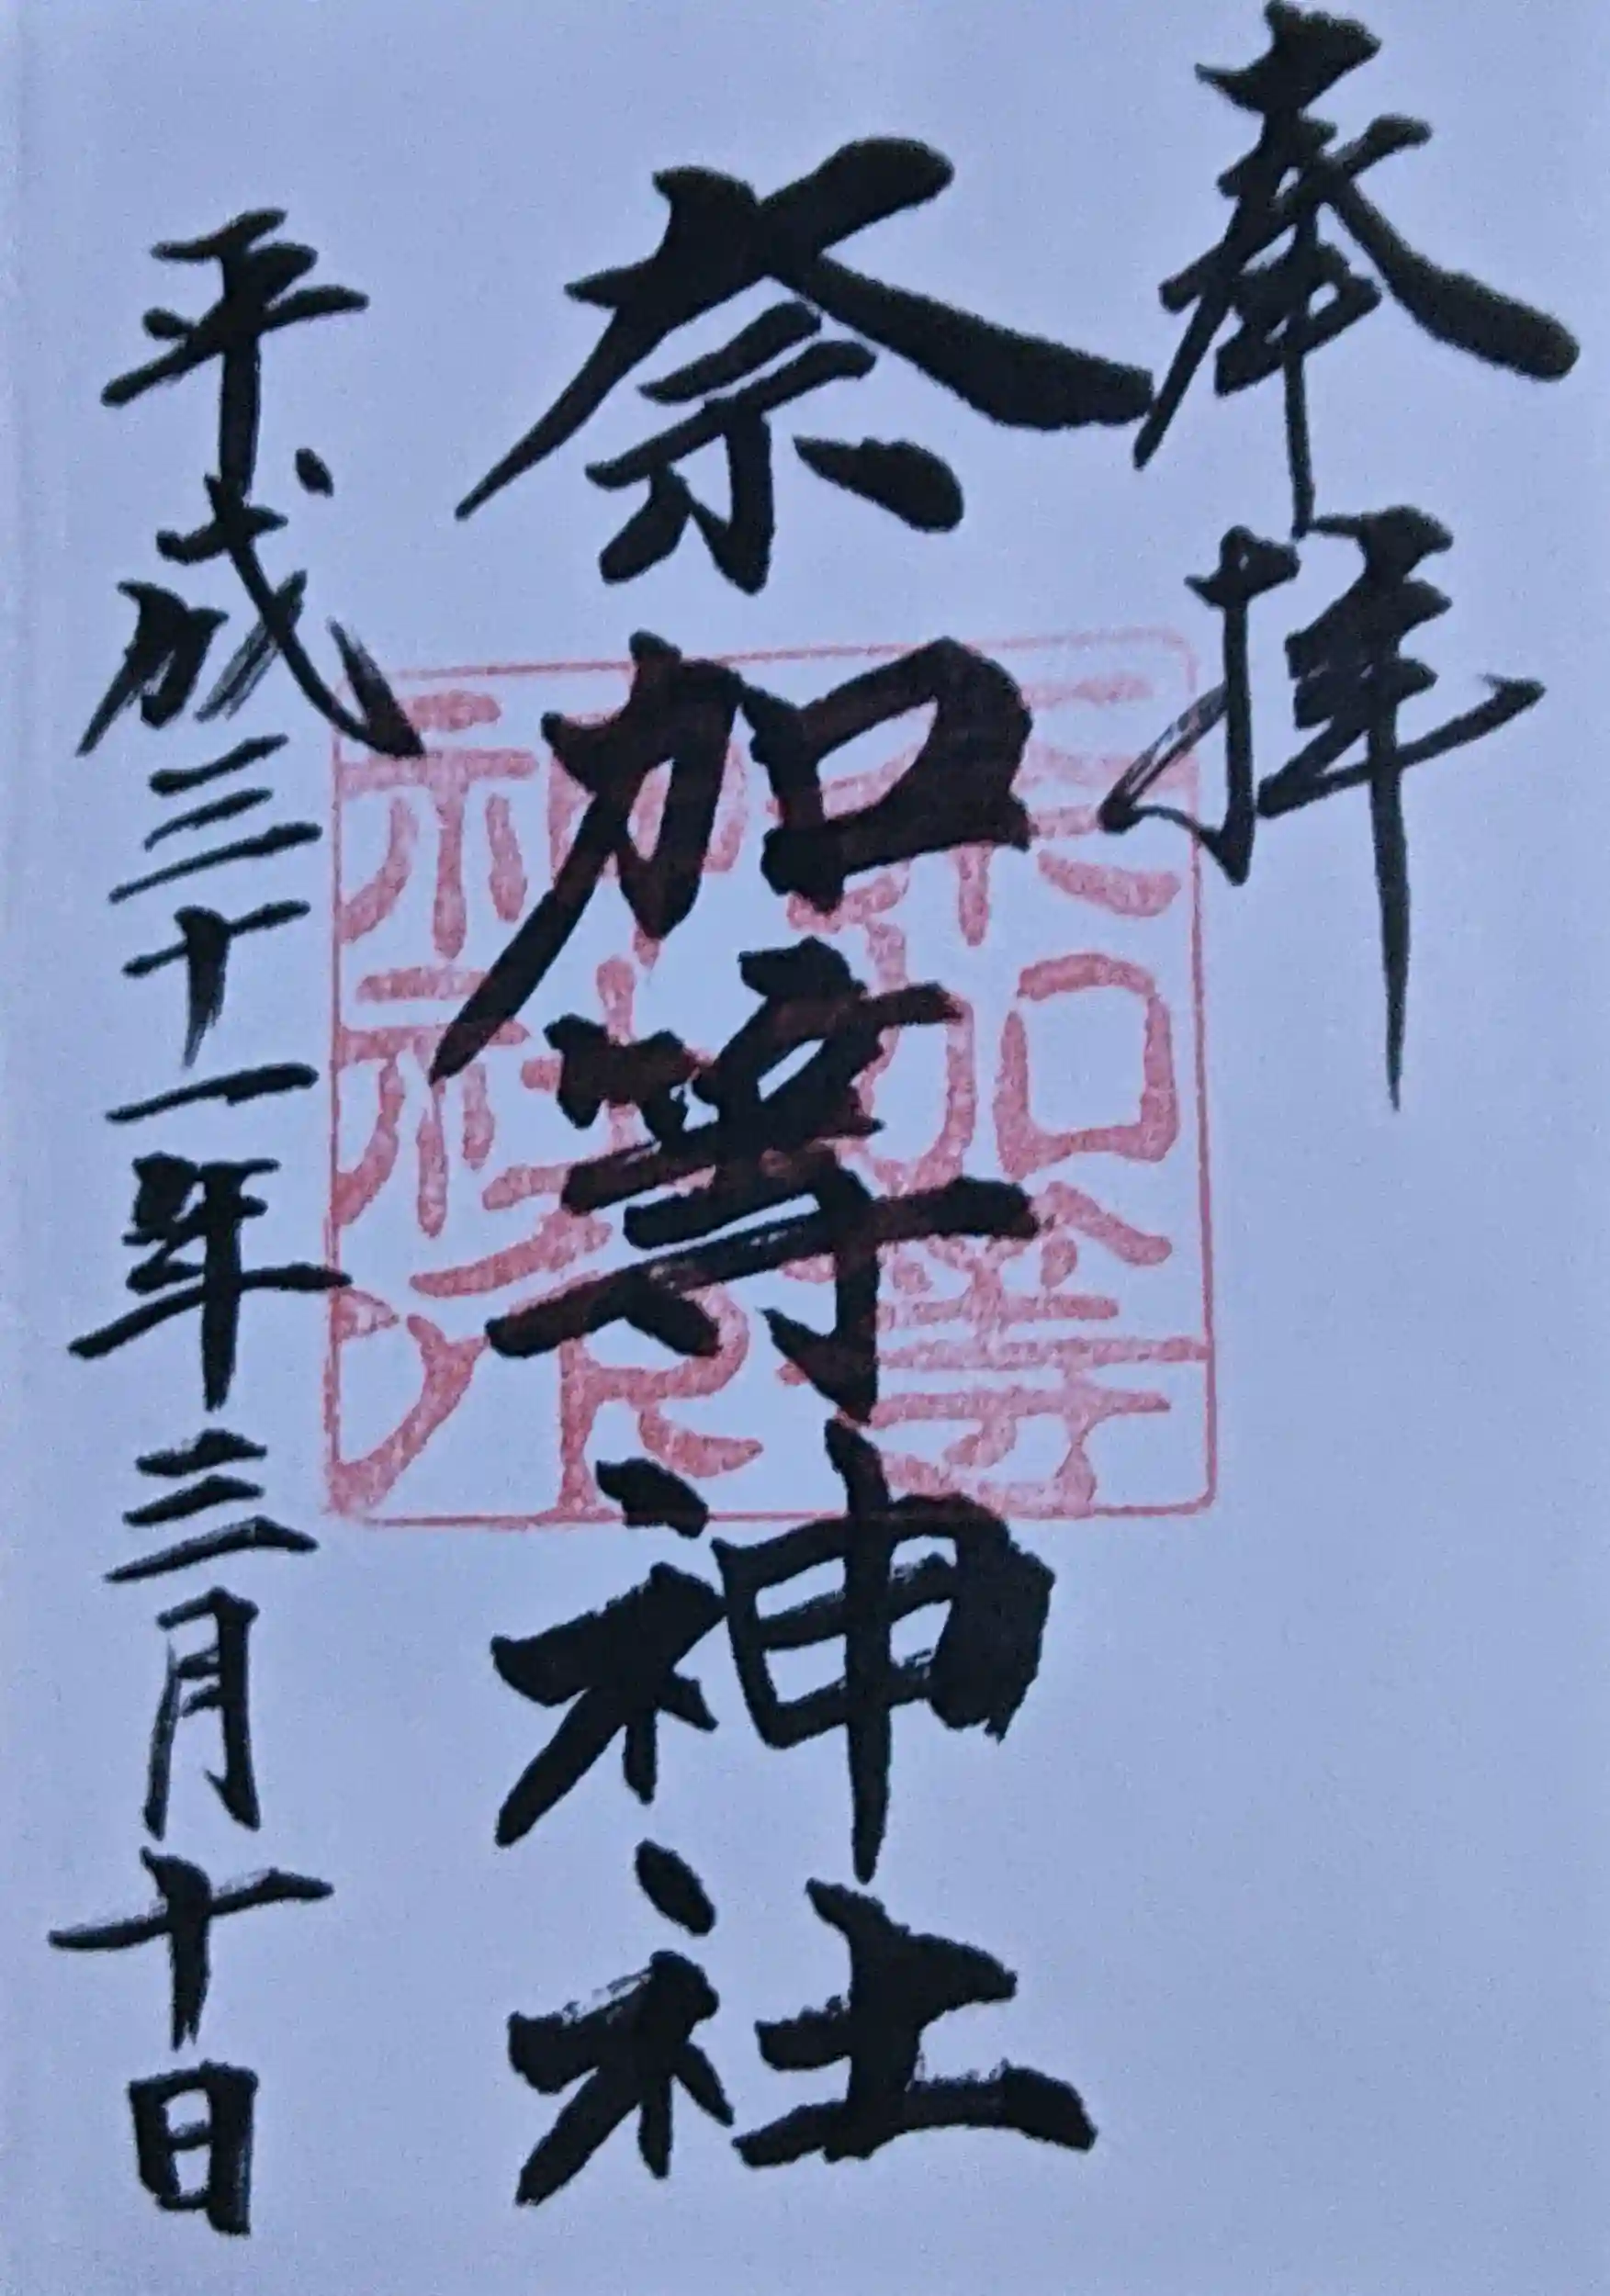 奉拝
奈加等神社
平成三十一年三月十日
奈加等
神社之印